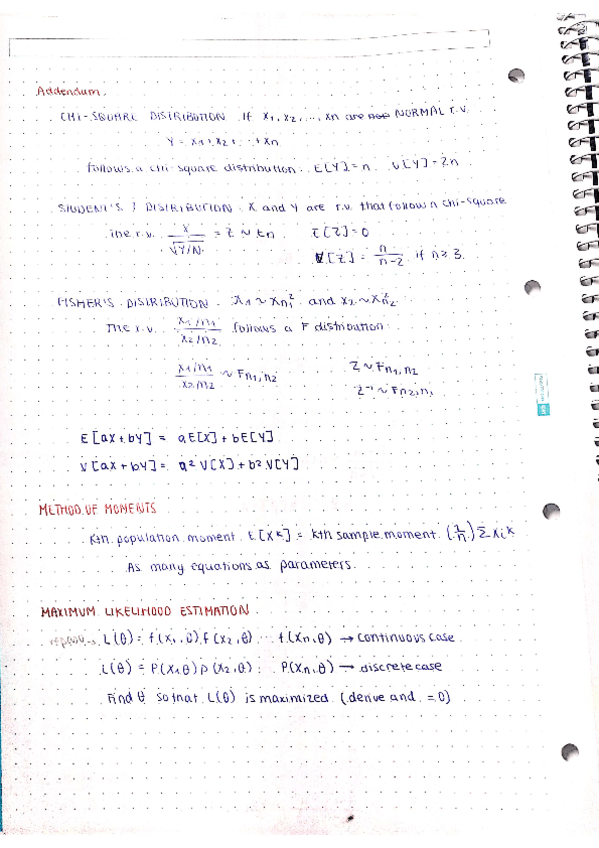 Addendum.
CHI-SQUARE DISTRIBUTION. If X₁, X₂, ..., Xn are NORMAL r.v.
Y = X₁ + X₂ + ... + Xn
follows a chi-square distribution. E[Y]=n. V[Y]=2n
STUDENT'S T DISTRIBUTION. X and Y are r.v. that follow n chi-square
The r.v. X / √Y/N = Z ~ tn E[Z]=0
V[Z] = n / n-2 if n≥3.
FISHER'S DISTRIBUTION. X₁ ~ Xn₁² and X₂ ~ Xn₂²
The r.v. X₁/n₁ / X₂/n₂ follows a F distribution
X₁/n₁ / X₂/n₂ ~ Fn₁,n₂ Z ~ Fn₁,n₂
Z⁻¹ ~ Fn₂,n₁
E[aX+bY] = aE[X]+bE[Y]
V[aX+bY] = a²V[X]+b²V[Y]
METHOD OF MOMENTS
Kth population moment E[Xᵏ] = Kth sample moment (1/n) Σxiᵏ
As many equations as parameters.
MAXIMUM LIKELIHOOD ESTIMATION
L(θ) = f(x₁,θ) f(x₂,θ) ... f(xn,θ) → continuous case
L(θ) = P(x₁θ) p(x₂,θ) ... P(xn,θ) → discrete case
Find θ so that L(θ) is maximized (derive and =0)